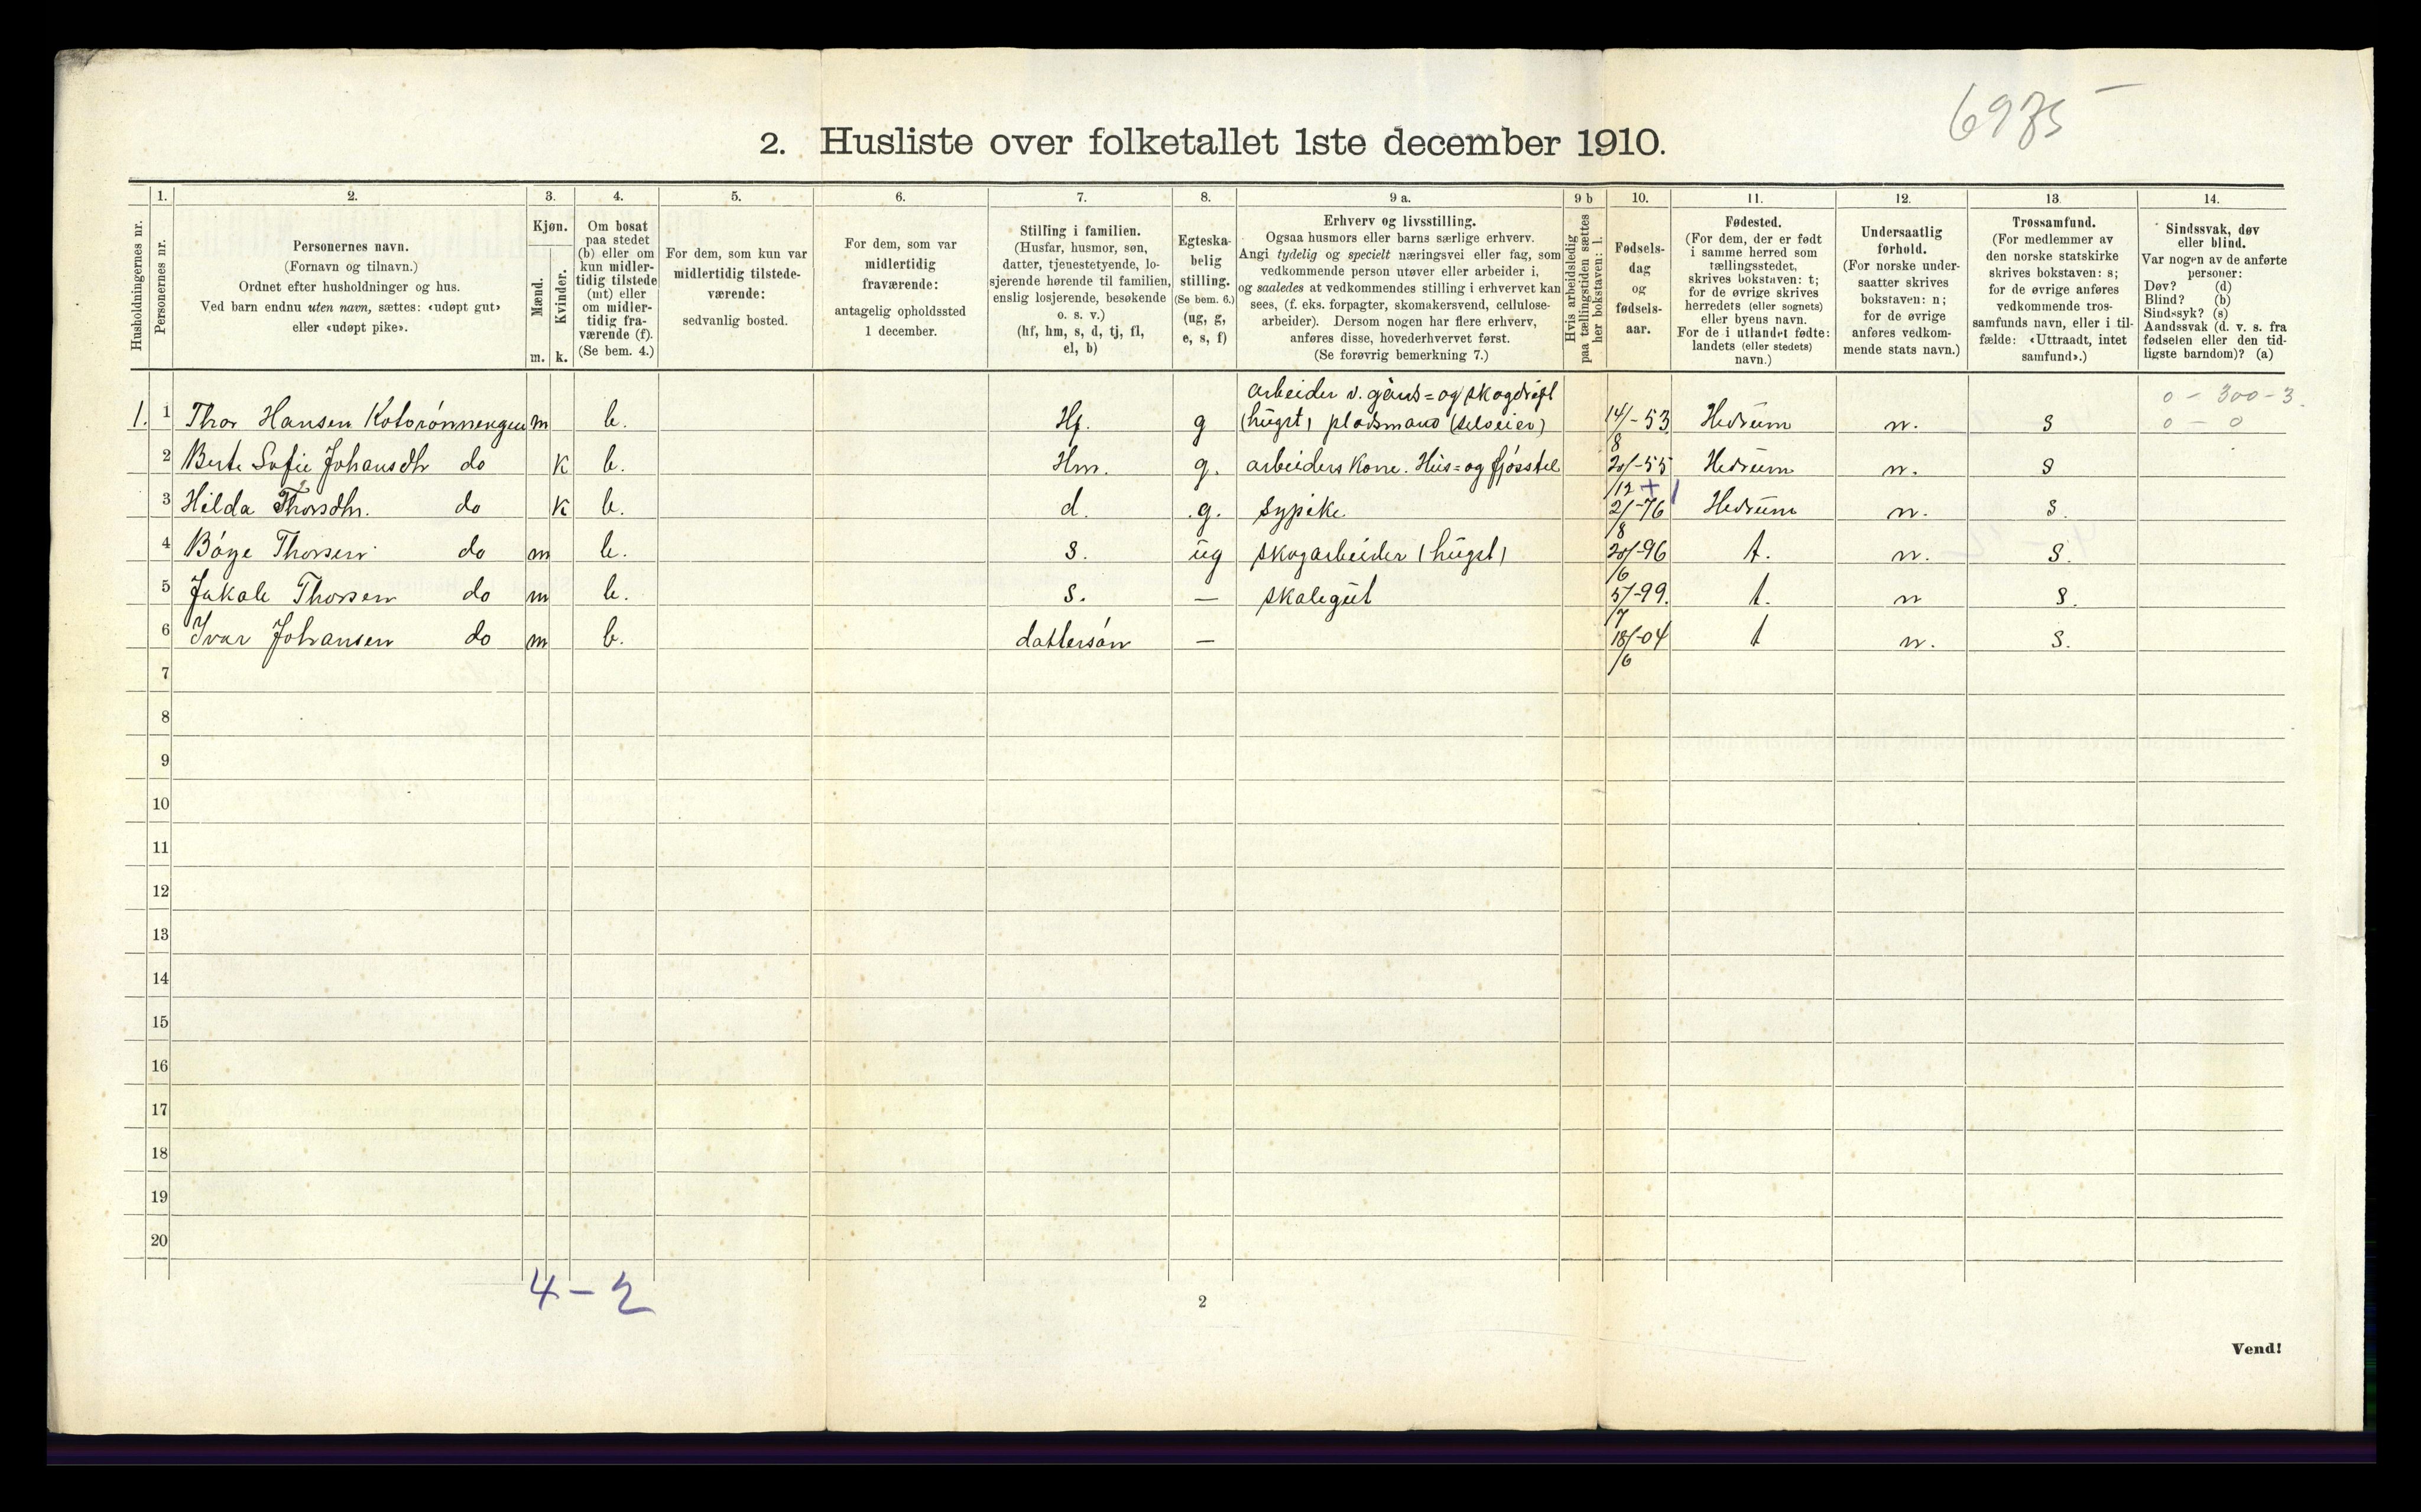 6975
2. Husliste over folketallet 1ste december 1910.
1. 2. 3. 4. 5. 6. 7. 8. 9 a. 9 b 10. 11. 12. 13. 14.
Husholdningernes nr.
Personernes nr.
Personernes navn.
(Fornavn og tilnavn.)
Ordnet efter husholdninger og hus.
Ved barn endnu uten navn, sættes: «udøpt gut»
eller «udøpt pike».
Kjøn.
Mænd.
Kvinder.
m. k.
Om bosat
paa stedet
(b) eller om
kun midler-
tidig tilstede
(mt) eller
om midler-
tidig fra-
værende (f).
(Se bem. 4.)
For dem, som kun var
midlertidig tilstede-
værende:
sedvanlig bosted.
For dem, som var
midlertidig
fraværende:
antagelig opholdssted
1 december.
Stilling i familien.
(Husfar, husmor, søn,
datter, tjenestetyende, lo-
sjerende hørende til familien,
enslig losjerende, besøkende
o. s. v.)
(hf, hm, s, d, tj, fl,
el, b)
Egteska-
belig
stilling.
(Se bem. 6.)
(ug, g,
e, s, f)
Erhverv og livsstilling.
Ogsaa husmors eller barns særlige erhverv.
Angi tydelig og specielt næringsvei eller fag, som
vedkommende person utøver eller arbeider i,
og saaledes at vedkommendes stilling i erhvervet kan
sees, (f. eks. forpagter, skomakersvend, cellulose-
arbeider). Dersom nogen har flere erhverv,
anføres disse, hovederhvervet først.
(Se forøvrig bemerkning 7.)
Hvis arbeidsledig
paa tællingstiden sættes
her bokstaven: l.
Fødsels-
dag
og
fødsels-
aar.
Fødested.
(For dem, der er født
i samme herred som
tællingsstedet,
skrives bokstaven: t;
for de øvrige skrives
herredets (eller sognets)
eller byens navn.
For de i utlandet fødte:
landets (eller stedets)
navn.)
Undersaatlig
forhold.
(For norske under-
saatter skrives
bokstaven: n;
for de øvrige
anføres vedkom-
mende stats navn.)
Trossamfund.
(For medlemmer av
den norske statskirke
skrives bokstaven: s;
for de øvrige anføres
vedkommende tros-
samfunds navn, eller i til-
fælde: «Uttraadt, intet
samfund».)
Sindssvak, døv
eller blind.
Var nogen av de anførte
personer:
Døv? (d)
Blind? (b)
Sindssyk? (s)
Aandssvak (d. v. s. fra
fødselen eller den tid-
ligste barndom)? (a)
arbeider v. gaards= og skogdrift 0 - 300 - 3.
1. 1 Thor Hansen Kolorønnengen m b. Hf. g (hugst) pladsmand (selveier) 14/8-53 Hedrum n. s 0 - 0
2 Berte Sofie Johansdtr do k b. Hm. g. arbeiders kone. Hus= og fjøsstel 20/12-55 Hedrum n. s
3 Hilda Thorsdtr. do k b. d. g. sypike 2/8-76 Hedrum n. s.
4 Børge Thorsen do m b. s. ug skogarbeider (hugst) 20/6-96 t. n. s.
5 Jakob Thorsen do m b. s. — skolegut 5/7-99. t. n s.
6 Ivar Johansen do m b. dattersøn — 18/6-04 t n. s.
7
8
9
10
11
12
13
14
15
16
17
18
19
20
4 - 2
2
Vend!